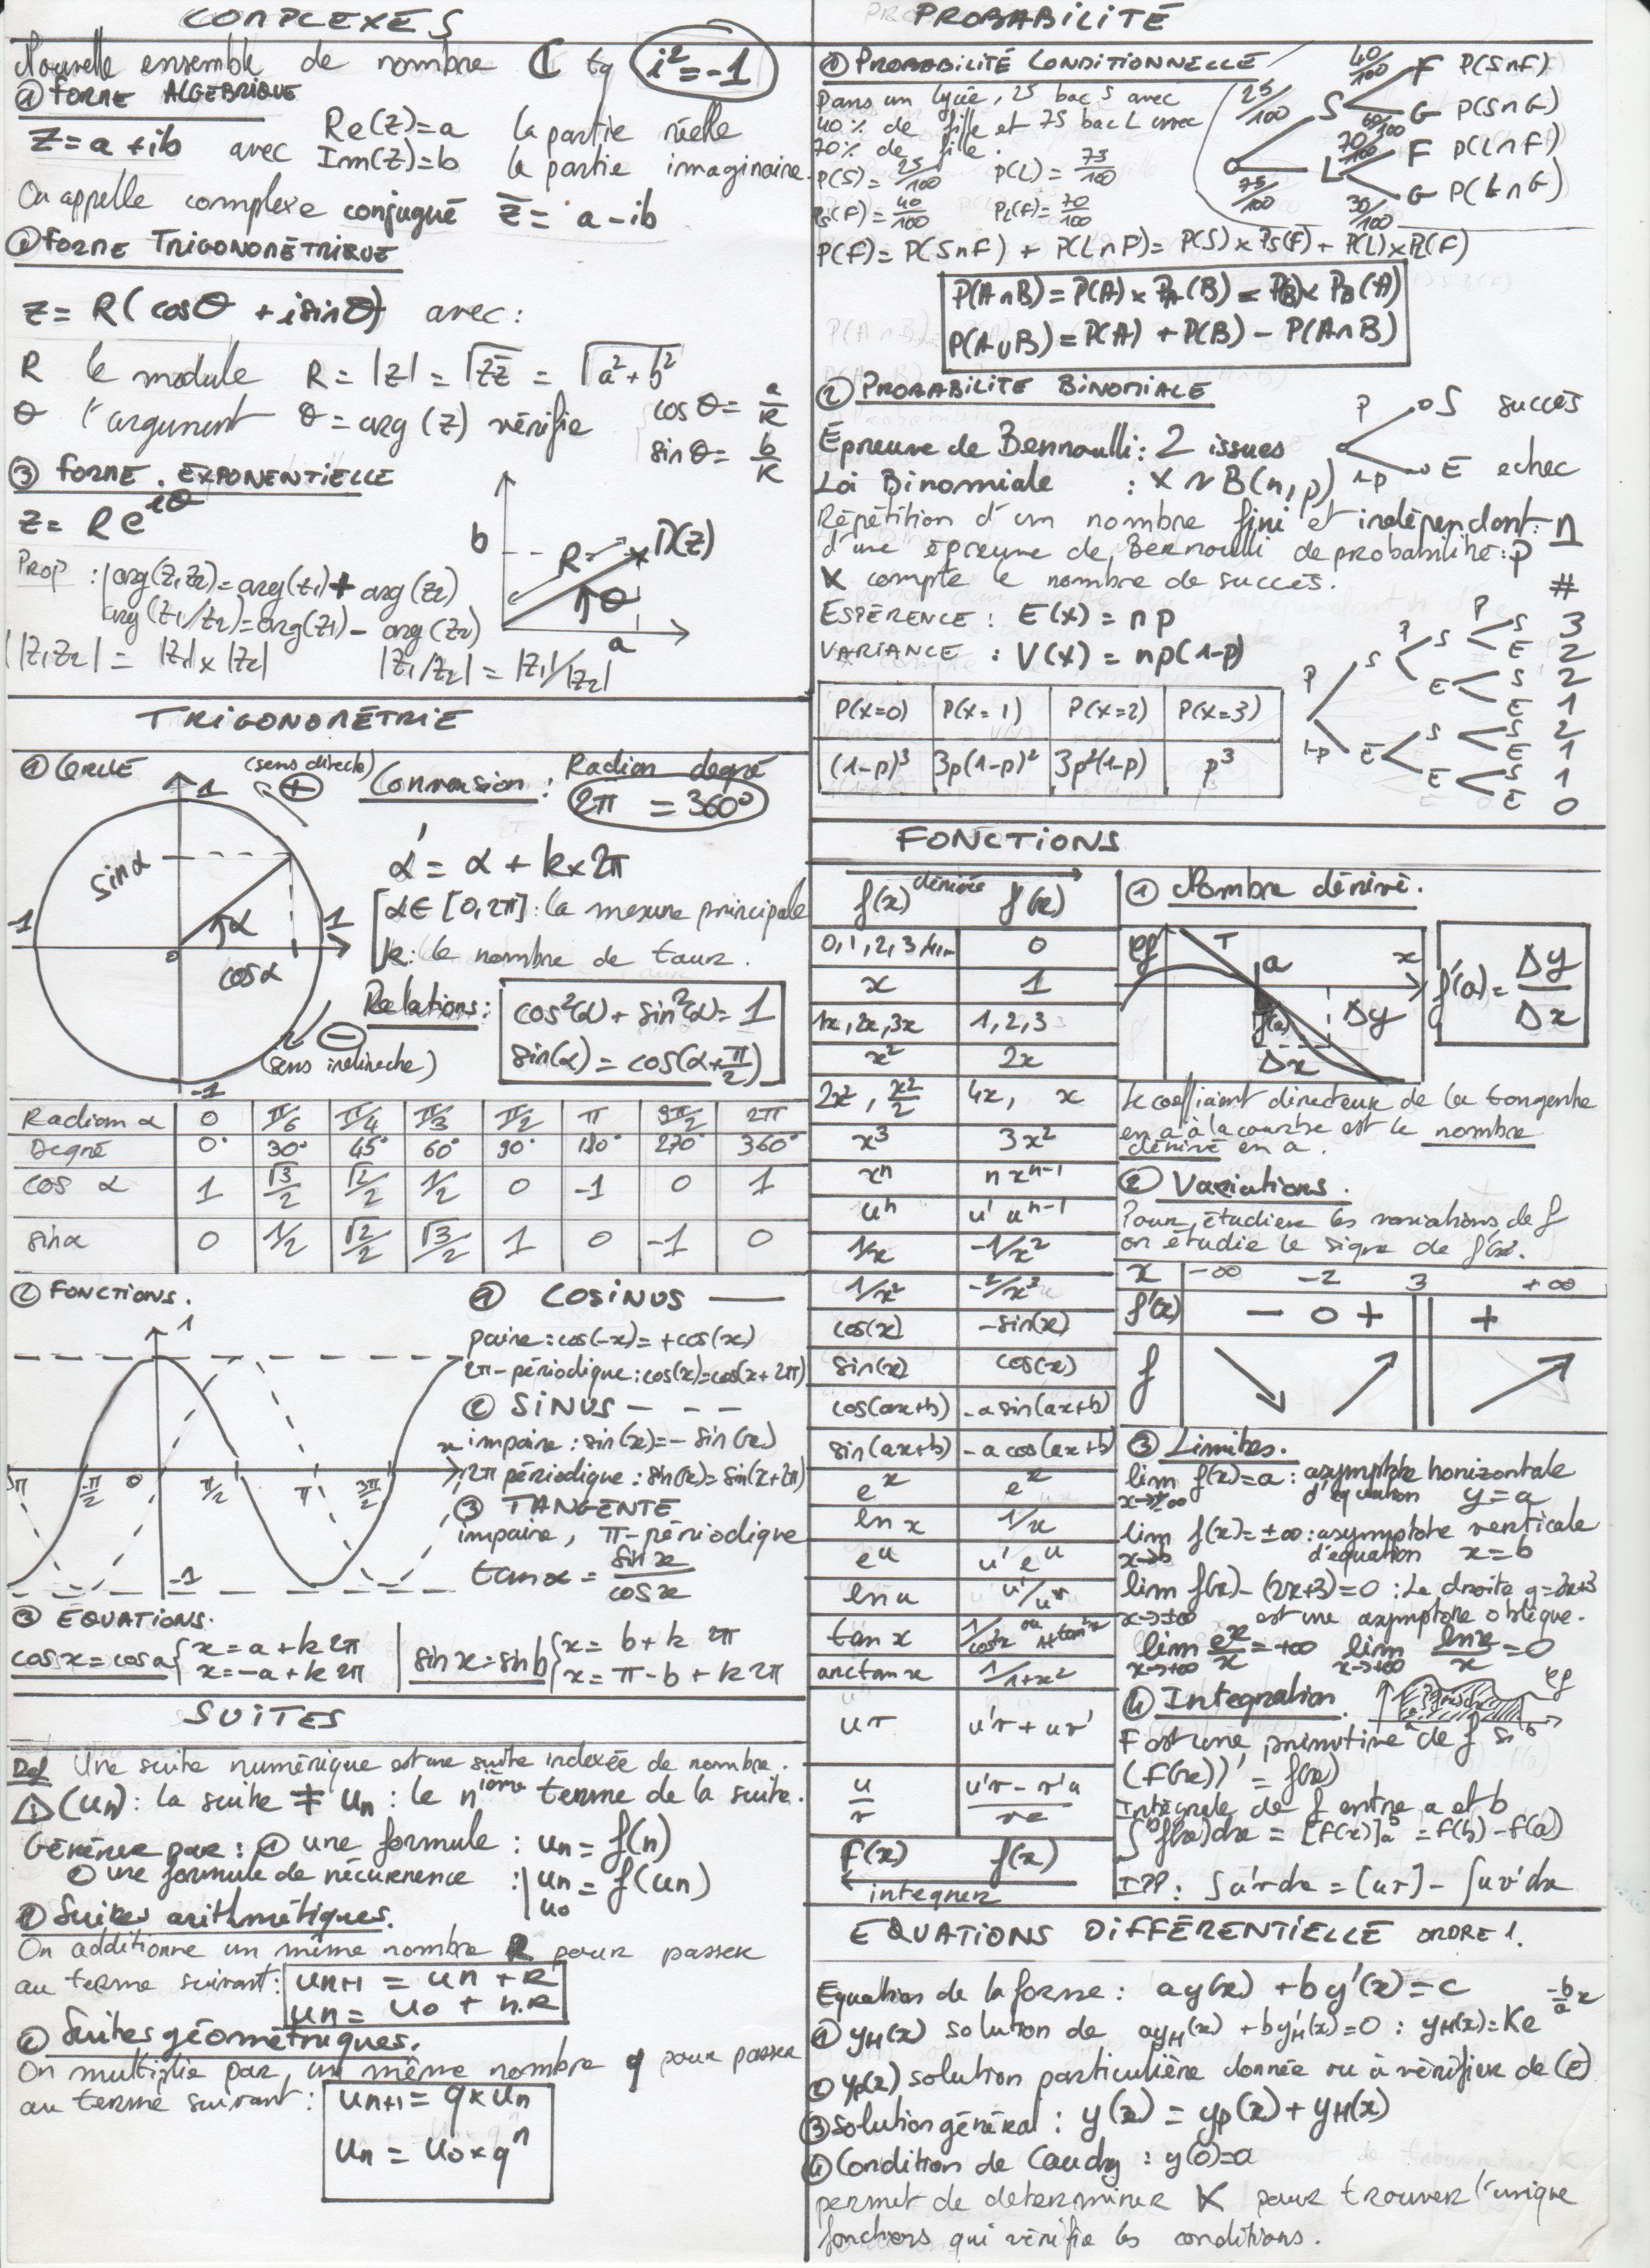 COMPLEXES
Nouvelle ensemble de nombre ℂ tq i²=-1
① FORME ALGEBRIQUE
Z=a+ib avec Re(z)=a la partie réelle
Im(z)=b la partie imaginaire.
On appelle complexe conjugué z̄ = a-ib
② FORME TRIGONOMÉTRIQUE
z= R(cosθ + isinθ) avec:
R le module R = |z| = √zz̄ = √a²+b²
θ l'argument θ = arg(z) vérifie cosθ = a/R
sinθ = b/R
③ FORME EXPONENTIELLE
z= Re^iθ
b R M(z) θ a
PROP : arg(z1z2)=arg(z1)+arg(z2)
arg(z1/z2)=arg(z1)-arg(z2)
|z1z2| = |z1|x|z2| |z1/z2| = |z1|/|z2|
TRIGONOMÉTRIE
① CERCLE (sens directe) + Conversion: Radian degré
2π = 360°
1 sinα -1 α 1 0 cosα -1
α' = α + k×2π
α∈[0,2π]: la mesure principale
k: le nombre de tour.
Relations: cos²(α)+sin²(α)=1
sin(α)=cos(α+π/2)
- (sens indirecte)
Radian α 0 π/6 π/4 π/3 π/2 π 3π/2 2π
Degré 0° 30° 45° 60° 90° 180° 270° 360°
cos α 1 √3/2 √2/2 1/2 0 -1 0 1
sinα 0 1/2 √2/2 √3/2 1 0 -1 0
② FONCTIONS.
1 -π -π/2 0 π/2 π 3π/2 x -1
① COSINUS —
paire: cos(-x)=+cos(x)
2π-périodique: cos(x)=cos(x+2π)
② SINUS - - -
impaire: sin(x)=-sin(x)
2π périodique: sin(x)=sin(x+2π)
③ TANGENTE
impaire, π-périodique
tanx = sinx/cosx
③ EQUATIONS.
cosx=cosa { x=a+k2π
x=-a+k2π
sinx=sinb { x= b+k 2π
x= π-b+k2π
SUITES
Def Une suite numérique est une suite indexée de nombre.
⚠ (un): la suite ≠ un: le nième terme de la suite.
Générer par: ① une formule : un=f(n)
② une formule de récurrence : un = f(un)
u0
① Suites arithmétiques.
On additionne un même nombre R pour passer
au terme suivant: un+1 = un+R
un= u0 + n.R
② Suites géométriques.
On multiplie par un même nombre q pour passer
au terme suivant: un+1=q×un
un = u0×q^n
PROBABILITÉ
① PROBABILITÉ CONDITIONNELLE
Dans un lycée, 25 bac S avec
40% de fille et 75 bac L avec
70% de fille.
P(S)=25/100 P(L)=75/100
Ps(F)=40/100 PL(F)=70/100
25/100 S 40/100 F P(S∩F)
60/100 G P(S∩G)
75/100 L 70/100 F P(L∩F)
30/100 G P(L∩G)
P(F)= P(S∩F) + P(L∩F)= P(S)×Ps(F)+P(L)×PL(F)
P(A∩B)=P(A)×PA(B)=P(B)×PB(A)
P(A∪B)=P(A)+P(B)-P(A∩B)
② PROBABILITE BINOMIALE
Épreuve de Bernoulli: 2 issues
P S succès
1-p E echec
Loi Binomiale : X~B(n,p)
Répétition d'un nombre fini et indépendant: n
d'une épreuve de Bernoulli de probabilité: p
X compte le nombre de succès.
ESPÉRENCE: E(X) = np
VARIANCE : V(X) = np(1-p)
P(X=0) P(X=1) P(X=2) P(X=3)
(1-p)³ 3p(1-p)² 3p²(1-p) p³
#
P S P S P S 3
E 2
E S 2
E 1
1-p E S S 2
E 1
E S 1
E 0
FONCTIONS
f(x) dérivée f'(x)
0,1,2,3 0
x 1
1x,2x,3x 1,2,3
x² 2x
2x², x²/2 4x, x
x³ 3x²
x^n n x^n-1
u^n u' u^n-1
1/x -1/x²
1/x² -2/x³
cos(x) -sin(x)
sin(x) cos(x)
cos(ax+b) -a sin(ax+b)
sin(ax+b) -a cos(ax+b)
e^x e^x
ln x 1/x
e^u u'e^u
ln u u'/u
tan x 1/cos²x ou 1+tan²x
arctan x 1/1+x²
uv u'v+uv'
u/v u'v-v'u/v²
F(x) f(x)
integrer
① Nombre dérivé.
Cf T a x f(a) Δy Δx
f'(a)= Δy/Δx
Le coefficient directeur de la tangente
en a à la courbe est le nombre
dérivé en a.
② Variations.
Pour étudier les variations de f
on étudie le signe de f'(x).
x -∞ -2 3 +∞
f'(x) - 0 + +
f
③ Limites.
lim x→±∞ f(x)=a: asymptote horizontale
d'equation y=a
lim x→b f(x)=±∞: asymptote verticale
d'equation x=b
lim x→±∞ f(x)-(2x+3)=0: La droite y=2x+3
est une asymptote oblique.
lim x→+∞ e^x/x=+∞ lim x→+∞ lnx/x=0
④ Integration
a b Cf
F est une primitive de f si
(F(x))' = f(x)
Intégrale de f entre a et b
∫f(x)dx = [F(x)]a^b = F(b)-F(a)
IPP: ∫u'vdx = [uv] - ∫uv'dx
EQUATIONS DIFFÉRENTIELLE ORDRE 1.
Equation de la forme: ay(x) +by'(x)=c
① yH(x) solution de ayH(x) +by'H(x)=0 : yH(x)=Ke^-b/a x
② yp(x) solution particulière donnée ou à vérifier de (E)
③ Solution général: y(x) = yp(x)+yH(x)
④ Condition de Cauchy : y(0)=a
permet de determiner K pour trouver l'unique
fonctions qui vérifie les conditions.